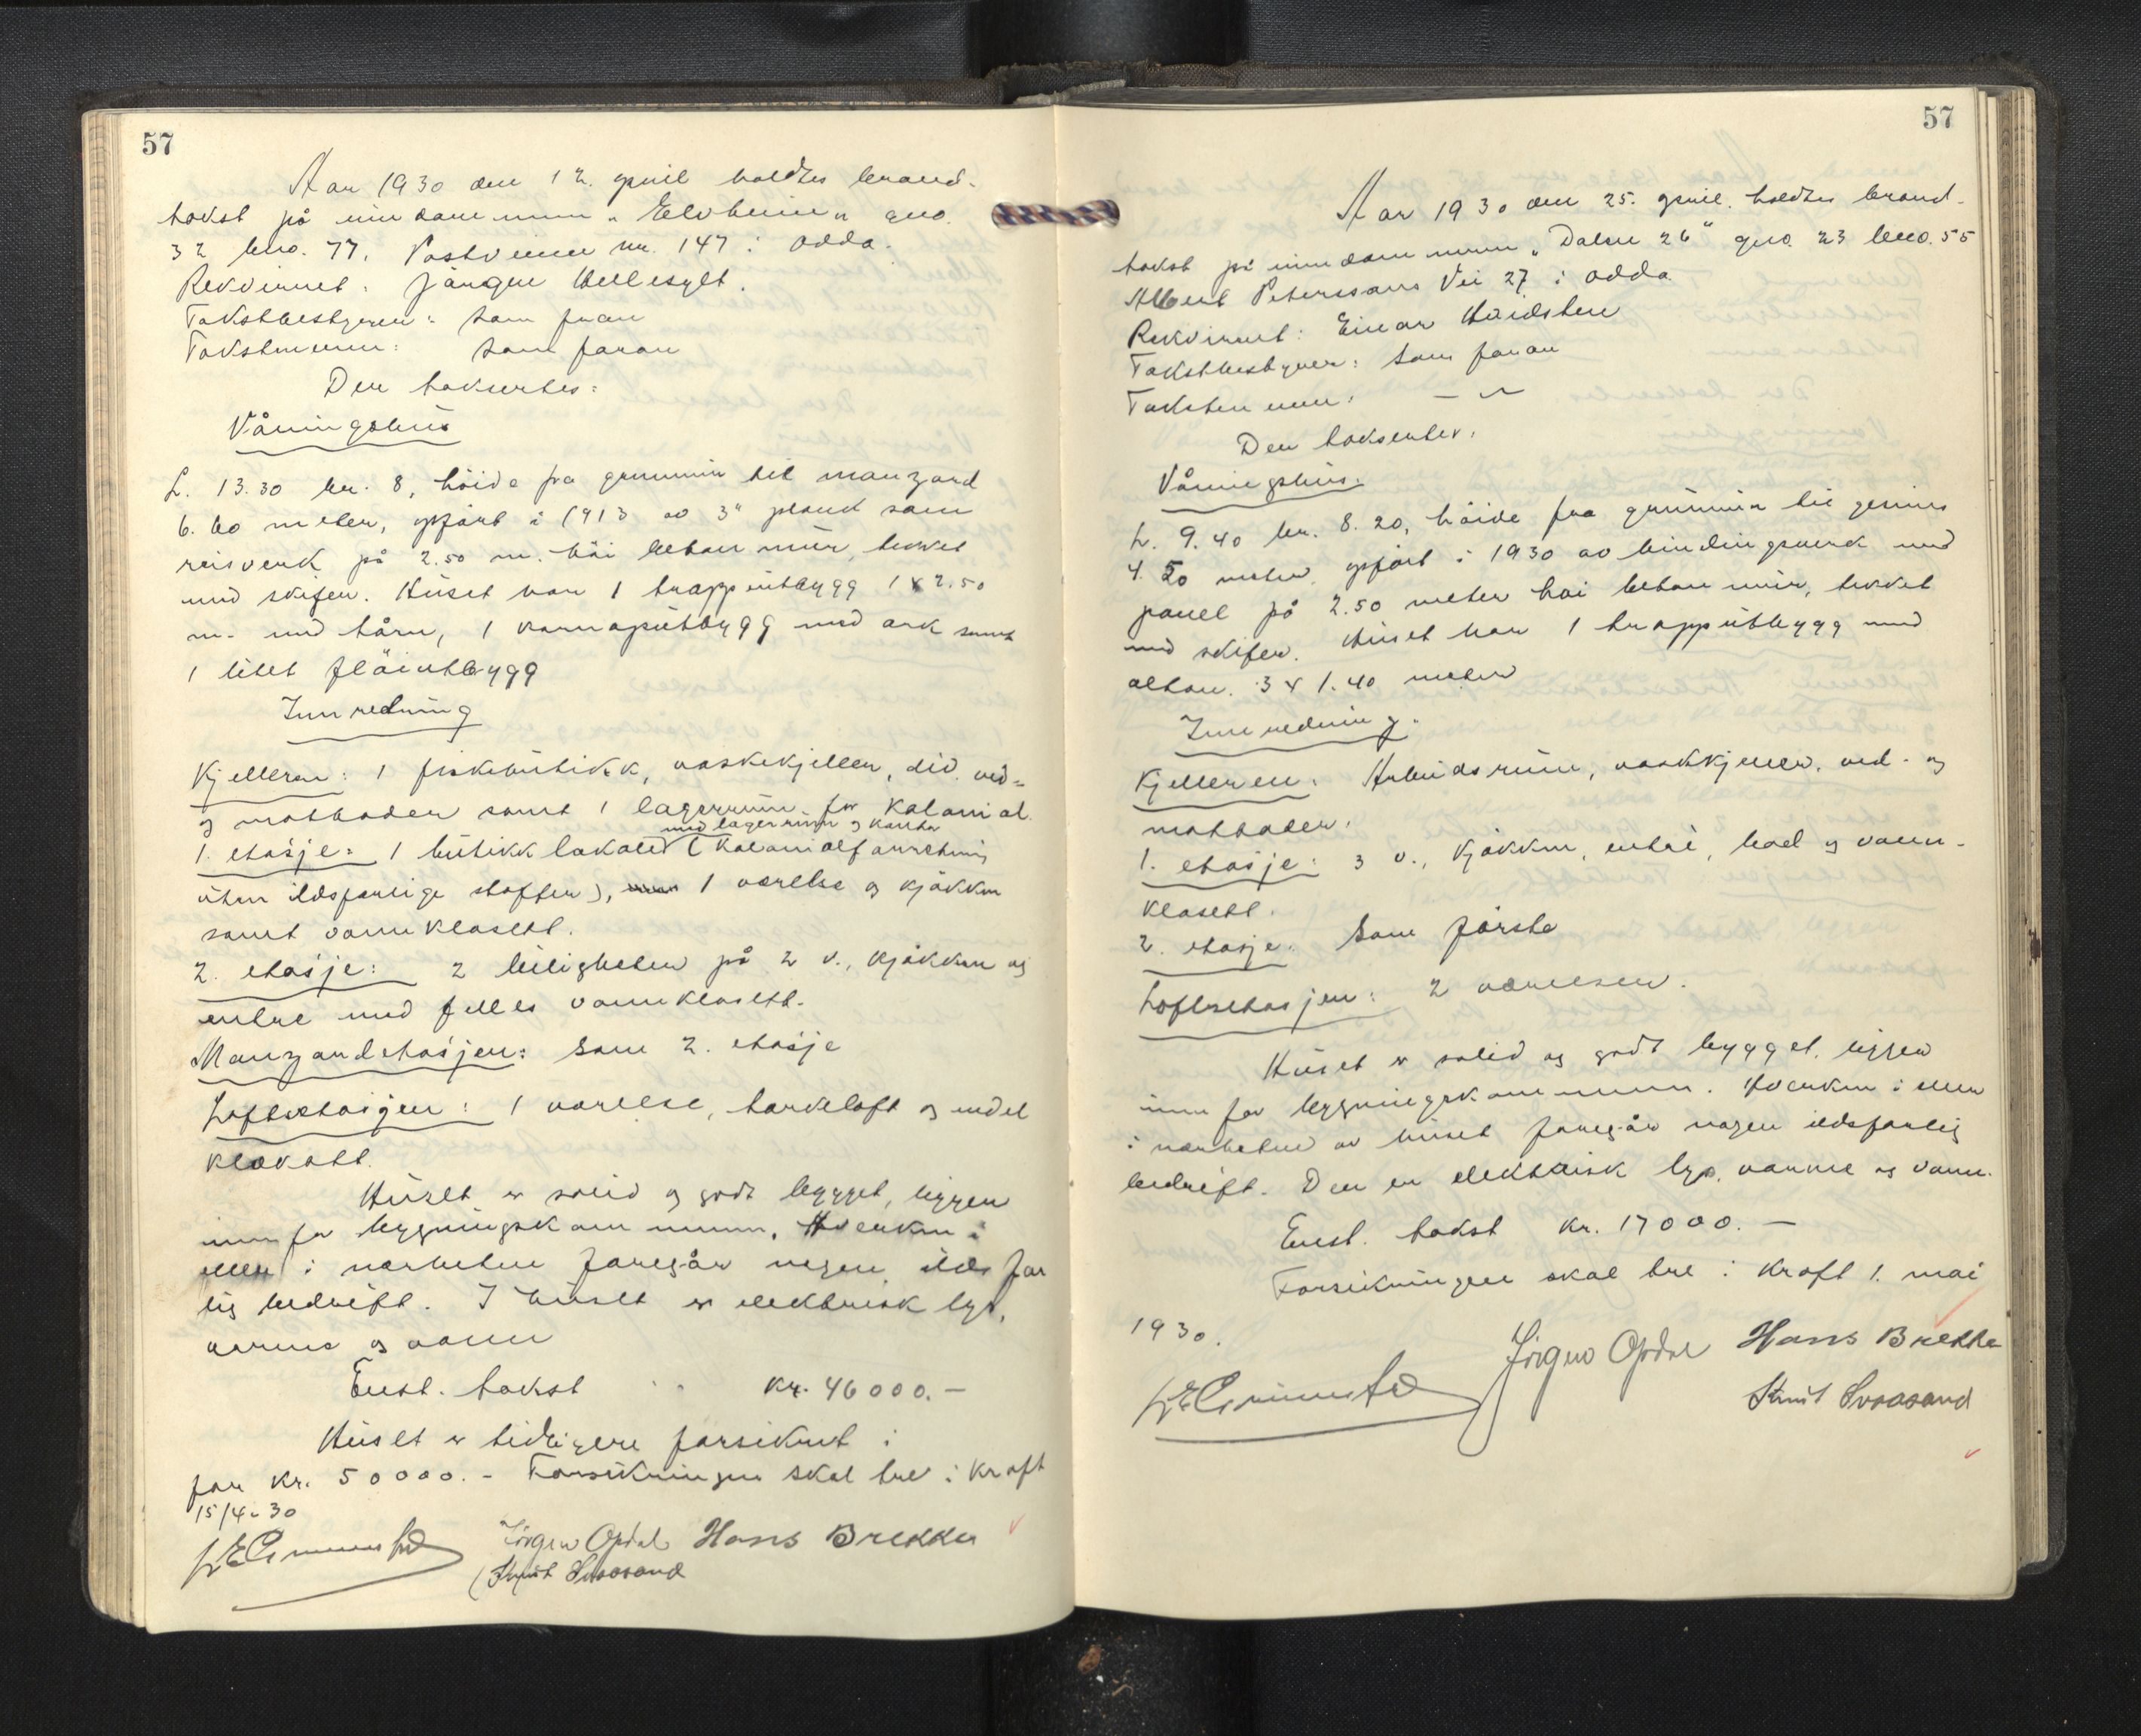 57
Aar 1930 den 12. april holdtes brand-
takst på eiendommen „Elvheim" gno.
32 bno. 77. Postveien nr. 147 i Odda.
Rekvirent: Jørgen Hellesylt.
Takstbestyrer: Som foran
Takstmenn: Som foran
Der taksertes:
Våningshus
L. 13.30 br. 8, høide fra grunnmur til manzard
6.60 meter, opført i 1913 av 3" plank som
reisverk på 2.50 m. høi betonmur, tekket
med skifer. Huset har 1 trappeutbygg 1 x 2.50
m. med tårn, 1 karnaputbygg med ark samt
1 litet fløiutbygg
Innredning
Kjelleren: 1 fiskebutikk, vaskekjeller, div. ved-
og matboder samt 1 lagerrum for kolonial.
med lagerrum og kontor
1. etasje: 1 butikklokale (kolonialforretning
uten ildsfarlige stoffer), 1 værelse og kjøkken
samt vannklosett.
2. etasje: 2 leiligheter på 2 v., kjøkken og
entre med felles vannklosett.
Manzardetasjen: Som 2. etasje
Loftsetasjen: 1 værelse, tørkeloft og endel
kløkott.
Huset er solid og godt bygget, ligger
innfor bygningskommunen. Hverken i
eller i nærheten foregår nogen ildsfar
lig bedrift. I huset er elektrisk lys,
varme og vann
Enst. takst kr. 46000.—
Huset er tidligere forsikret i
for kr. 50000.- Forsikringen skal tre i kraft
15/4-30
Jørgen Opdal Hans Brekke
Knut Svoasand
57
Aar 1930 den 25. april holdtes brand-
takst på eiendommen „Dalen 26" gno. 23 bno. 55
Albert Peterssons Vei 27 i Odda
Rekvirent: Einar Haidsten
Takstbestyrer: Som foran
Takstmenn: — " —
Der taksertes:
Våningshus.
L. 9.40 br. 8.20, høide fra grunnmur til gesims
4.50 meter, opført i 1930 av bindingsverk med
panel på 2.50 meter høi betonmur, tekket
med skifer. Huset har 1 trappeutbygg med
altan. 3 x 1.40 meter
Innredning.
Kjelleren: Arbeidsrum, vaskekjeller, ved- og
matboder.
1. etasje: 3 v., kjøkken, entré, bad og vann-
klosett.
2. etasje: Som første
Loftsetasjen: 2 værelser.
Huset er solid og godt bygget, ligger
innfor bygningskommunen. Hverken i eller
i nærheten av huset foregår nogen ildsfarlig
bedrift. Der er elektrisk lys, varme og vann.
Enst. takst kr. 17000.—
Forsikringen skal tre i kraft 1. mai
1930.
Jörgen Opdal Hans Brekke
Knut Svoasand